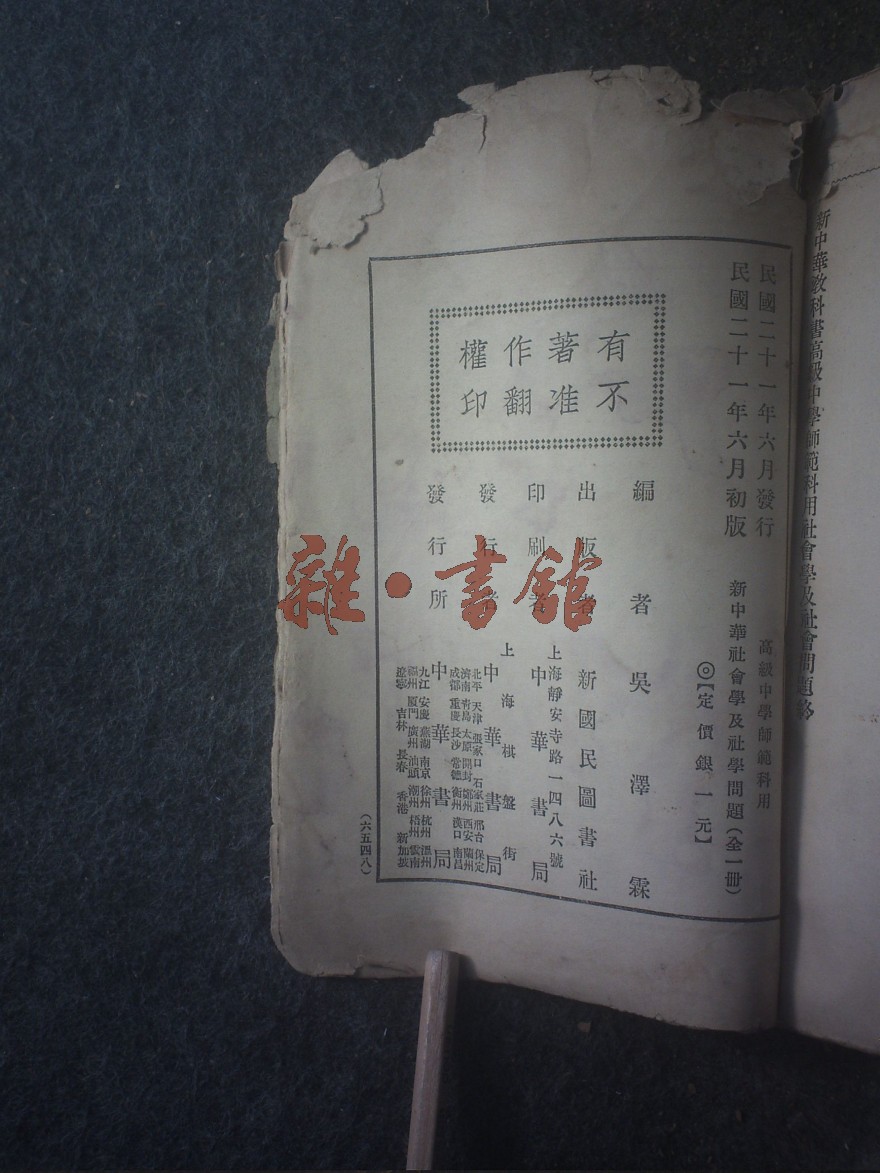 新中華教科書高級中學師範科用社會學及社會問題終
民國二十一年六月發行
民國二十一年六月初版
高級中學師範科用
新中華社會學及社學問題(全一冊)
◎【定價銀一元】
有著作權
不准翻印
編者 吳澤霖
出版者 新國民圖書社
上海靜安寺路一四八六號
印刷者 中華書局
上海棋盤街
發行者 中華書局
發行所 中華書局
北平 天津 張家口 石家莊 邢台 保定
濟南 青島 太原 開封 鄭州 西安 蘭州
成都 重慶 長沙 常德 衡州 漢口 南昌
九江 安慶 蕪湖 南京 徐州 杭州 溫州
福州 厦門 廣州 汕頭 潮州 梧州 雲南
遼寧 吉林 長春 香港 新加坡
(六五四八)
雜·書館